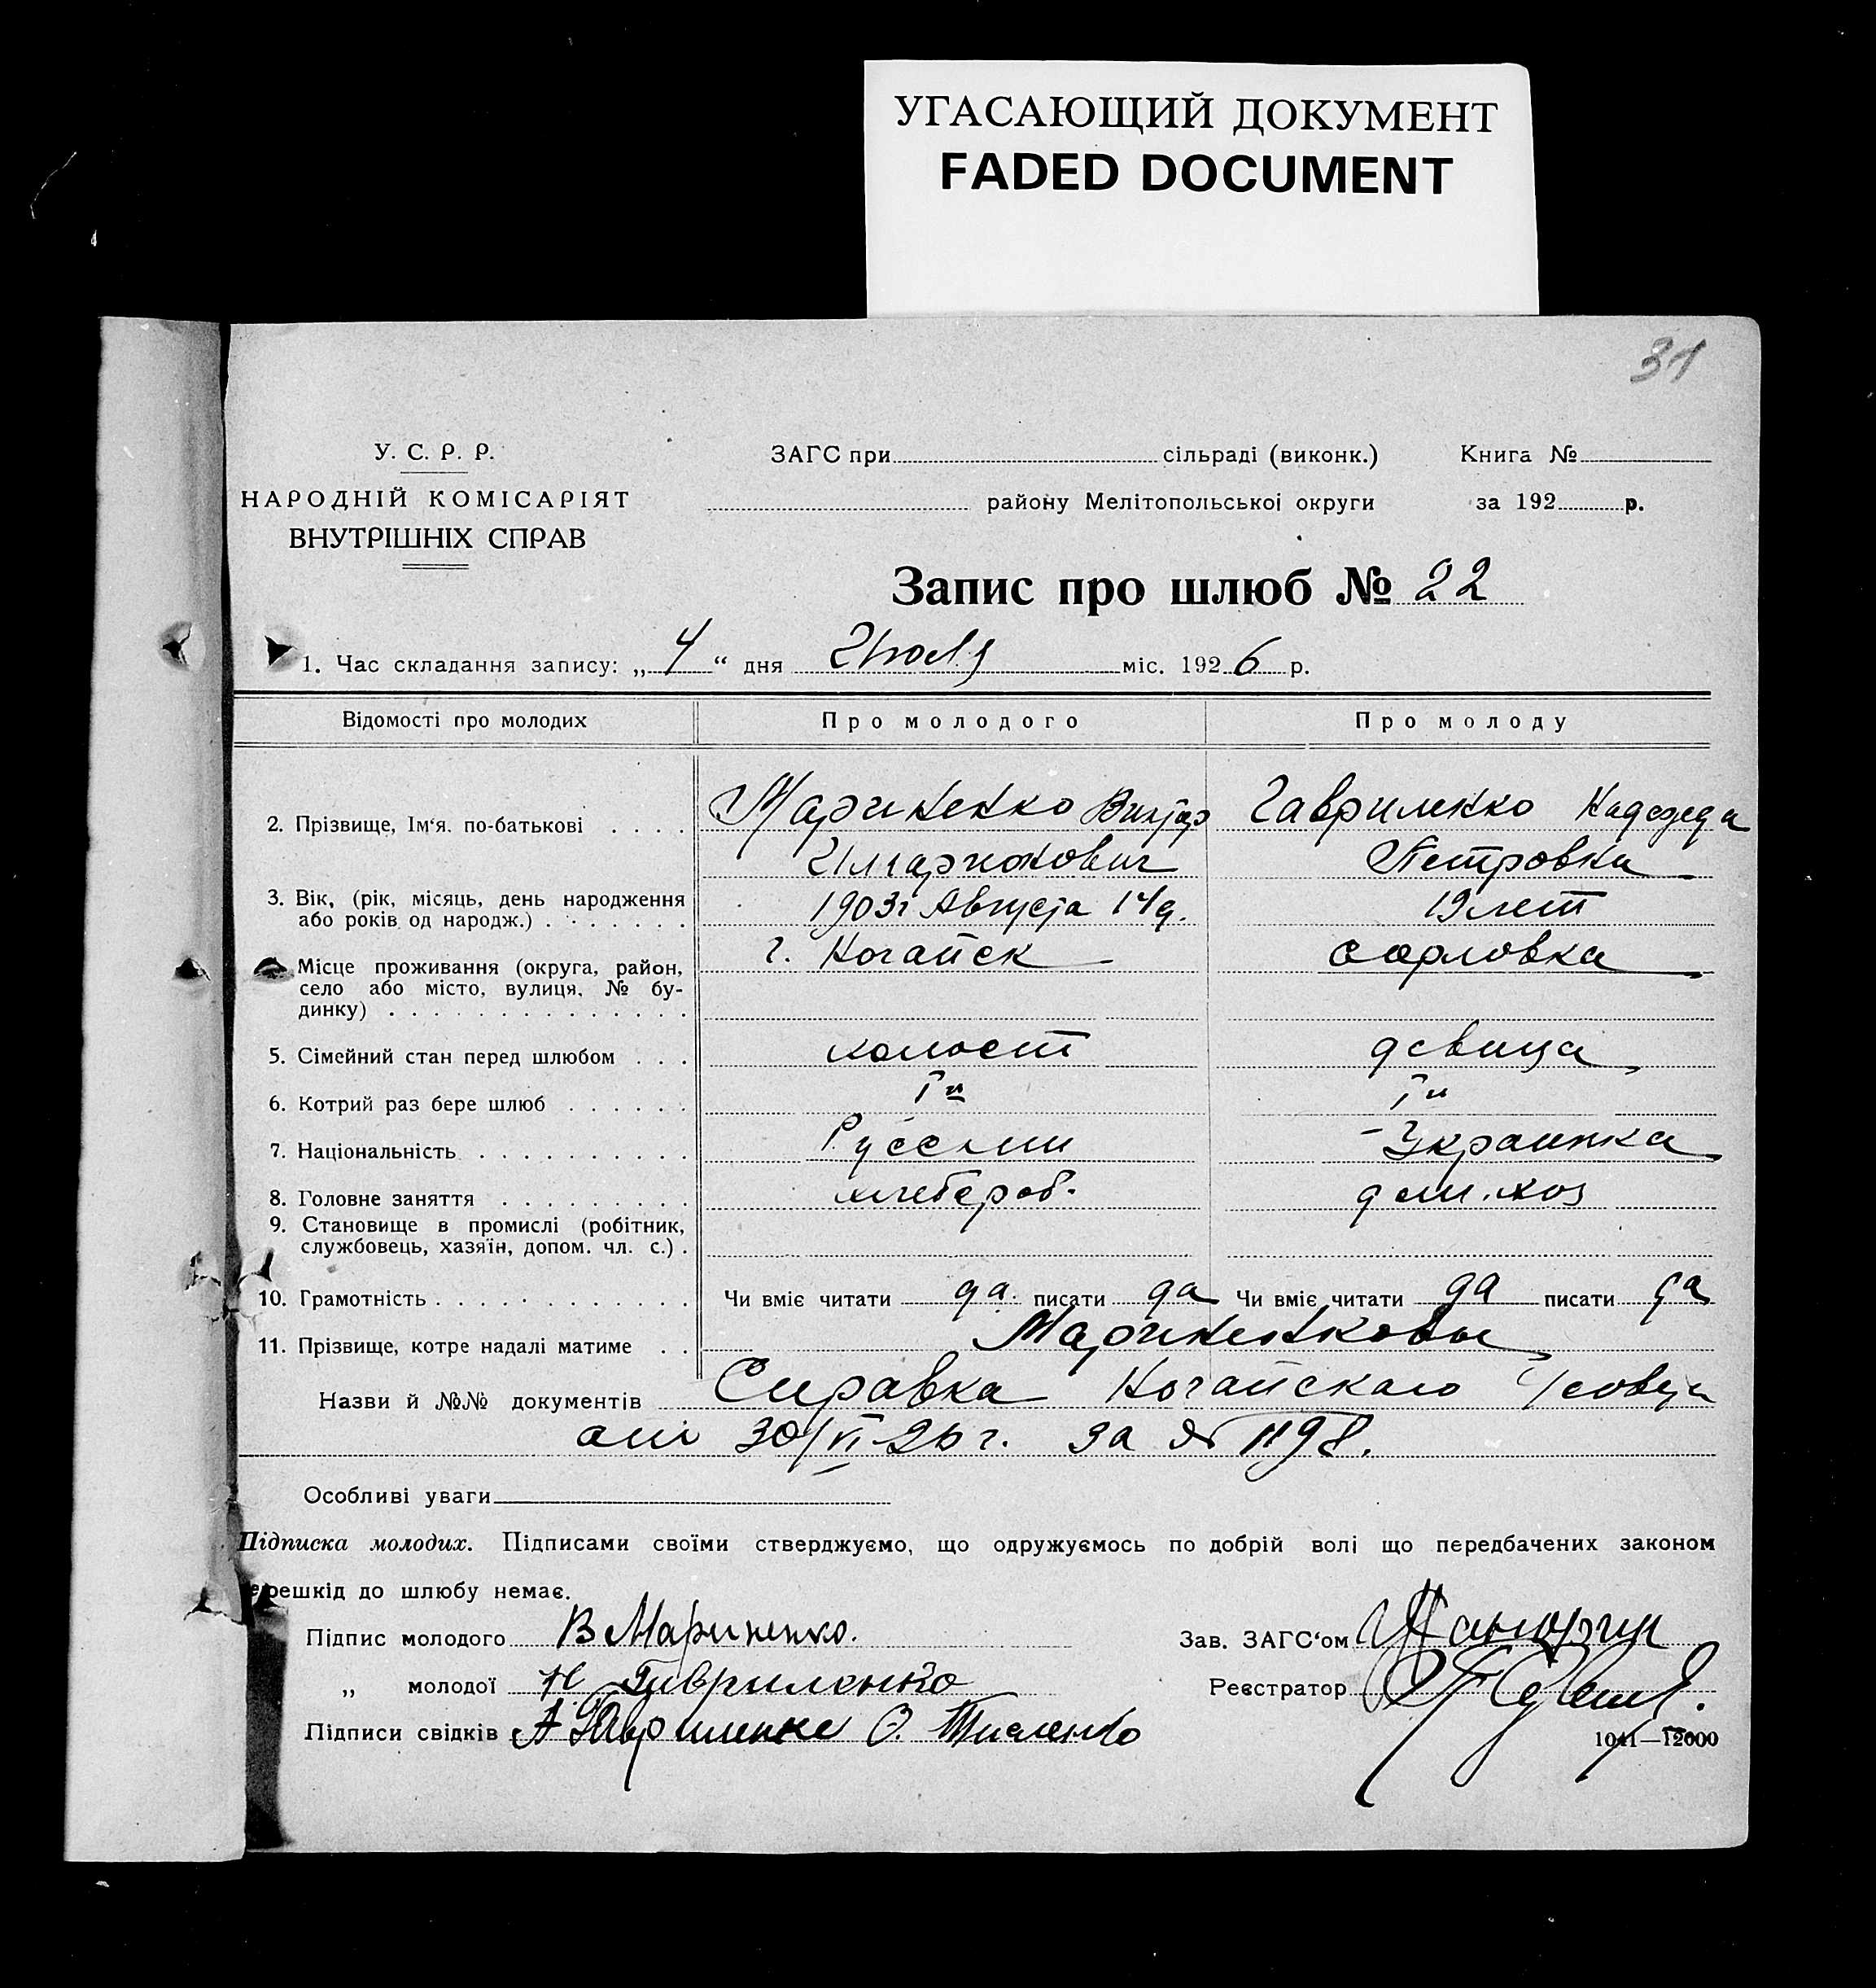 УГАСАЮЩИЙ ДОКУМЕНТ
FADED DOCUMENT
31
У. С. Р. Р.
НАРОДНІЙ КОМІСАРІЯТ
ВНУТРІШНІХ СПРАВ
ЗАГС при сільраді (виконк.) Книга №
району Мелітопольської округи за 192 р.
Запис про шлюб № 22
1. Час складання запису: „ 4 “ дня Июля міс. 1926 р.
Відомості про молодих Про молодого Про молоду
2. Прізвище, Ім'я, по-батькові . . . . Мариненко Виктор Гавриленко Надежда
Петровна
3. Вік, (рік, місяць, день народження 1903г Августа 14д. 19 лет
або років од народж.) . . . . . . .
Місце проживання (округа, район, г. Ногайск Орловка
село або місто, вулиця, № бу-
динку) . . . . . . . . . . . . . .
5. Сімейний стан перед шлюбом . . . холост девица
6. Котрий раз бере шлюб . . . . . . Iй Iй
7. Національність . . . . . . . . . . Русский Украинка
8. Головне заняття . . . . . . . . . хлебороб. дом. хоз
9. Становище в промислі (робітник,
службовець, хазяїн, допом. чл. с.) .
10. Грамотність . . . . . . . . . . . . Чи вміє читати да. писати да Чи вміє читати да писати да
11. Прізвище, котре надалі матиме . . Мариненковы
Назви й №№ документів Справка Ногайскаго
от 30/VI-26 г. за № 1198.
Особливі уваги
Підписка молодих. Підписами своїми стверджуємо, що одружуємось по добрій волі що передбачених законом
перешкід до шлюбу немає.
Підпис молодого В Мариненко. Зав. ЗАГС'ом
„ молодої Н Гавриленко Реєстратор
Підписи свідків А Гавриленко О.
1041—12000